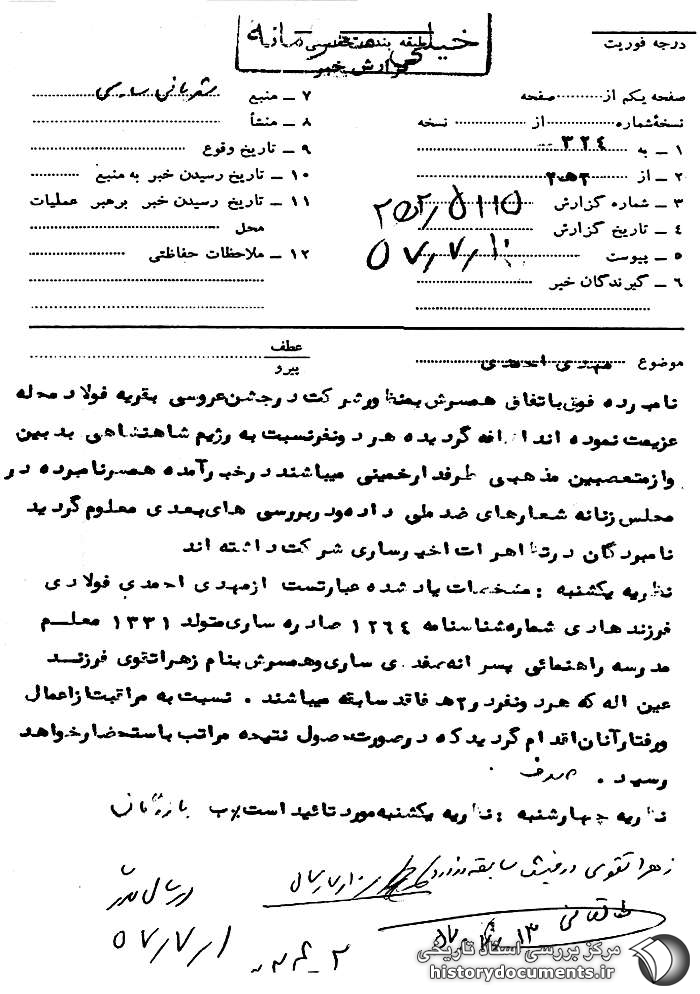 خیلی محرمانه
طبقه بندی حفاظتی
گزارش خبر
درجه فوریت
صفحه یکم از صفحه
نسخهٔ شماره از نسخه
۱ ـ به ۳۲۴
۲ ـ از ۲ه۲
۳ ـ شماره گزارش
۴ ـ تاریخ گزارش ۵۷٫۷٫۱۰
۵ ـ پیوست
۶ ـ گیرندگان خبر
۷ ـ منبع
۸ ـ منشأ
۹ ـ تاریخ وقوع
۱۰ ـ تاریخ رسیدن خبر به منبع
۱۱ ـ تاریخ رسیدن خبر برهبر عملیات
محل
۱۲ ـ ملاحظات حفاظتی
موضوع مهدی احمدی
عطف
پیرو
نامبرده فوق باتفاق همسرش بمنظور شرکت در جشن عروسی بقریه فولاد محله
عزیمت نموده اند اضافه گردیده هر دونفر نسبت به رژیم شاهنشاهی بدبین
واز متعصبین مذهبی طرفدار خمینی میباشند در خبر آمده همسر نامبرده در
مجلس زنانه شعارهای ضد ملی داده ودر بررسی های بعدی معلوم گردید
نامبردگان در تظاهرات اخیر ساری شرکت داشته اند
نظریه یکشنبه : مشخصات یاد شده عبارتست از مهدی احمدی فولادی
فرزند هادی شماره شناسنامه ۱۲۶۴ صادره ساری متولد ۱۳۳۱ معلم
مدرسه راهنمائی پسرانه سعدی ساری وهمسرش بنام زهرا تقوی فرزند
عین اله که هر دونفر در ۲ه فاقد سابقه میباشند . نسبت به مراقبت از اعمال
ورفتار آنان اقدام گردید که در صورت حصول نتیجه مراتب باستحضار خواهد
رسید .
نظریه چهارشنبه : نظریه یکشنبه مورد تائید است
زهرا تقوی در فیش سابقه ندارد
طالقانی
۵۷٫۷٫۱
مرکز بررسی اسناد تاریخی
historydocuments.ir